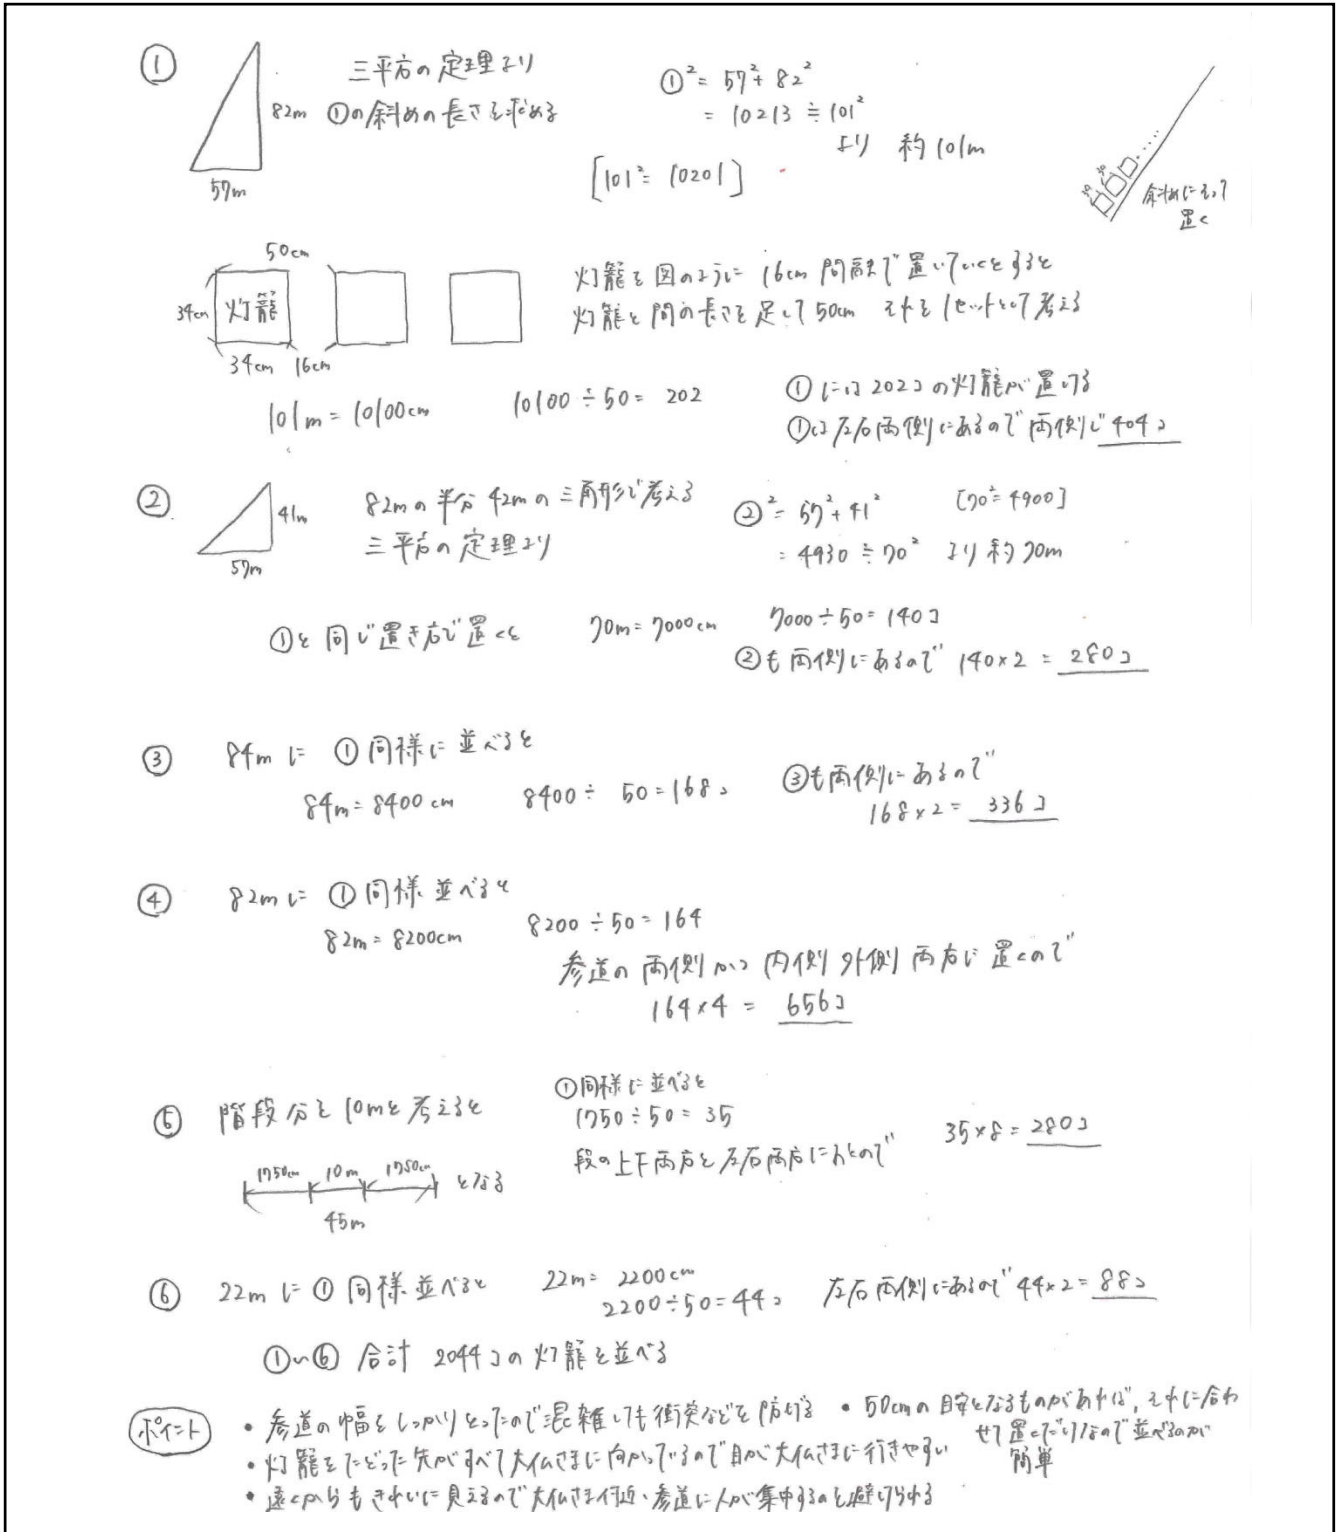 ①
三平方の定理より
①の斜めの長さを求める
82m
57m
①² = 57² + 82²
= 10213 ≒ 101²
より 約101m
[101² = 10201]
30 30
斜めにそって
置く
50cm
34cm
灯籠
34cm 16cm
灯籠を図のように 16cm 間隔で置いていくとすると
灯籠と間の長さを足して50cm それを1セットとして考える
101m = 10100cm
10100 ÷ 50 = 202
①には202コの灯籠が置ける
①は左右両側にあるので両側で404コ
②
41m
57m
82mの半分 42mの三角形で考える
三平方の定理より
②² = 57² + 41²
[70² = 4900]
= 4930 ≒ 70² より約70m
①と同じ置き方で置くと
70m = 7000cm
7000 ÷ 50 = 140コ
②も両側にあるので 140×2 = 280コ
③
84m に ①同様に並べると
84m = 8400cm
8400 ÷ 50 = 168コ
③も両側にあるので
168×2 = 336コ
④
82mに ①同様 並べると
82m = 8200cm
8200 ÷ 50 = 164
参道の両側かつ内側外側両方に置くので
164×4 = 656コ
⑤
階段分を10mと考えると
1750cm 10m 1750cm
となる
45m
①同様に並べると
1750 ÷ 50 = 35
段の上下両方と左右両方におくので
35×8 = 280コ
⑥
22mに①同様並べると
22m = 2200cm
2200 ÷ 50 = 44コ
左右両側にあるので 44×2 = 88コ
①〜⑥ 合計 2044コの灯籠を並べる
ポイント
・参道の幅をしっかりとったので混雑しても衝突などを防げる
・灯籠をたどった先がすべて大仏さまに向かっているので目が大仏さまに行きやすい
・遠くからもきれいに見えるので大仏さま付近・参道に人が集中するのを避けられる
・50cmの目安となるものがあれば、それに合わ
せて置くだけなので並べるのが
簡単